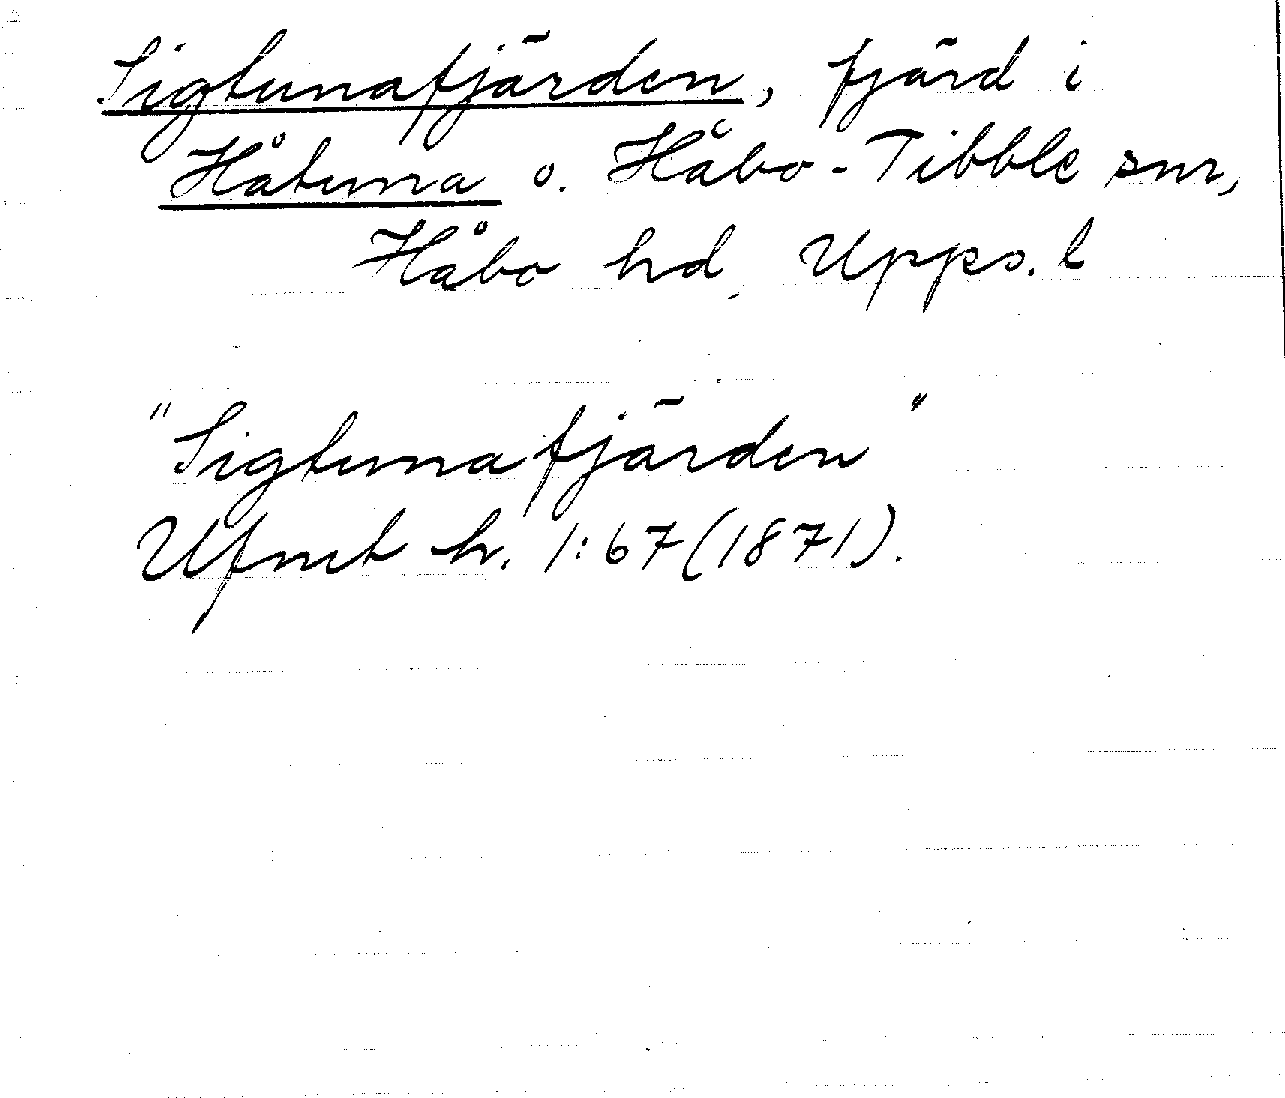 Sigtunafjärden, fjärd i
Håtuna o. Håbo-Tibble snr,
Håbo hd, Upps. l
"Sigtunafjärden"
Ufmt h. 1:67(1871).